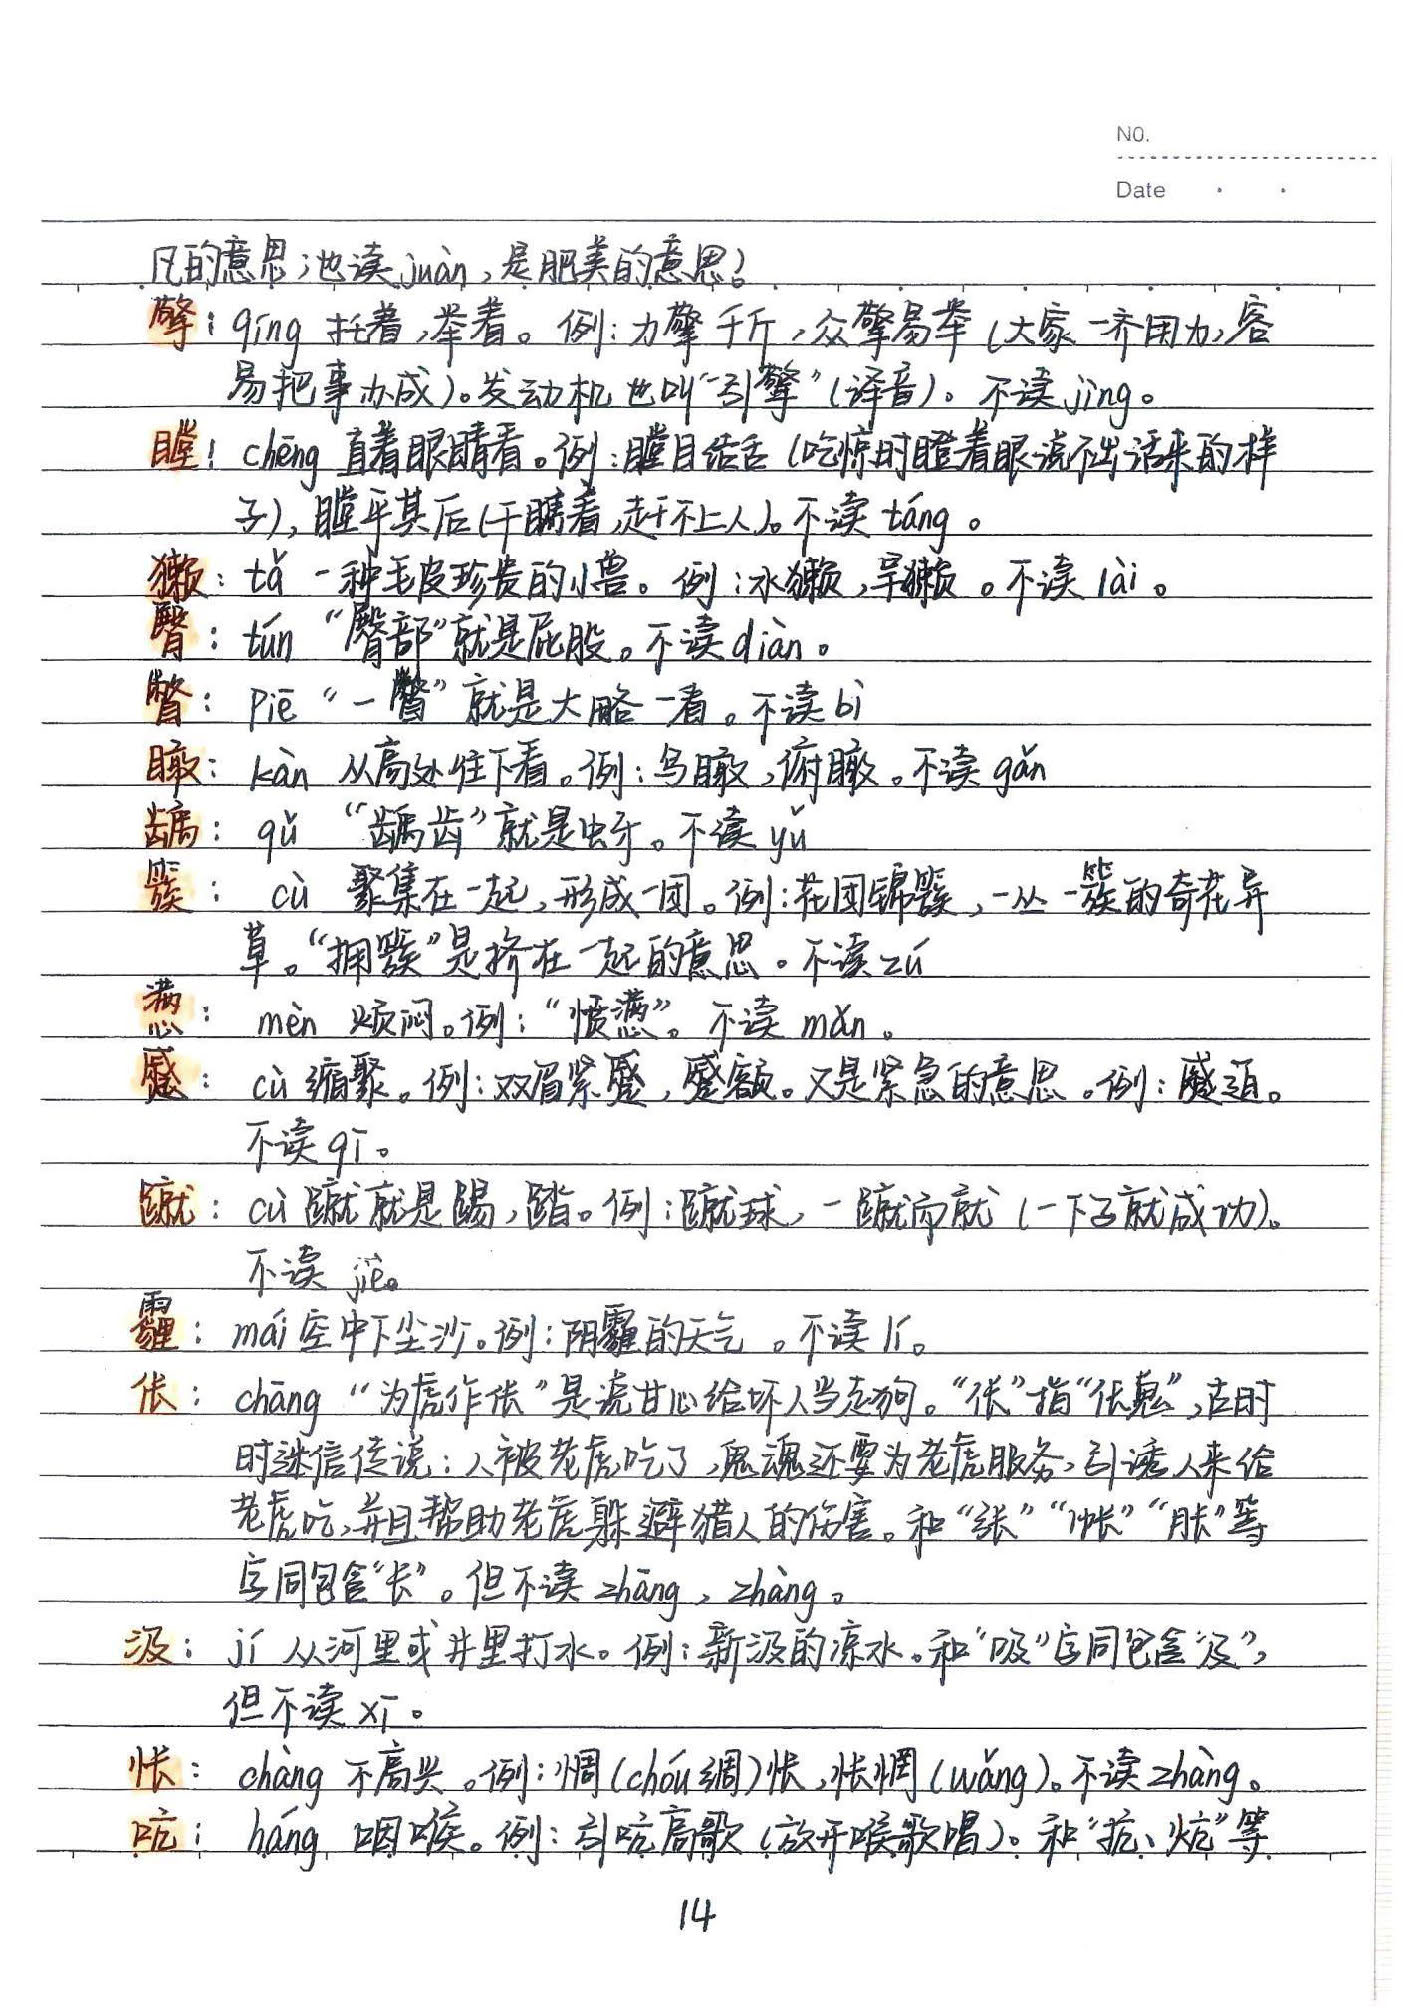 NO.
Date
凡的意思；也读juàn，是肥美的意思）
擎：qíng 托着，举着。例：力擎千斤，众擎易举（大家一齐用力，容
易把事办成）。发动机也叫“引擎”（译音）。不读jìng。
瞠：chēng 直着眼睛看。例：瞠目结舌（吃惊时瞪着眼说不出话来的样
子），瞠乎其后（干瞧着，赶不上人）。不读táng。
獭：tǎ 一种毛皮珍贵的小兽。例：水獭，旱獭。不读lài。
臀：tún “臀部”就是屁股。不读diàn。
瞥：piē “一瞥”就是大略一看。不读bì
瞰：kàn 从高处往下看。例：鸟瞰，俯瞰。不读gǎn
龋：qǔ “龋齿”就是虫牙。不读yǔ
簇：cù 聚集在一起，形成一团。例：花团锦簇，一丛一簇的奇花异
草。“拥簇”是挤在一起的意思。不读zú
懑：mèn 烦闷。例：“愤懑”。不读mǎn。
蹙：cù 缩聚。例：双眉紧蹙，蹙额。又是紧急的意思。例：蹙迫。
不读qī。
蹴：cù 蹴就是踢，踏。例：蹴球，一蹴而就（一下子就成功）。
不读jiē。
霾：mái 空中下尘沙。例：阴霾的天气。不读lí。
伥：chāng “为虎作伥”是说甘心给坏人当走狗。“伥”指“伥鬼”，古时
时迷信传说：人被老虎吃了，鬼魂还要为老虎服务，引诱人来给
老虎吃，并且帮助老虎躲避猎人的伤害。和“张”“帐”“胀”等
字同包含“长”。但不读zhāng，zhàng。
汲：jí 从河里或井里打水。例：新汲的凉水。和“吸”字同包含“及”，
但不读xī。
怅：chàng 不高兴。例：惆（chóu绸）怅，怅惘（wǎng）。不读zhàng。
吭：háng 咽喉。例：引吭高歌（放开喉歌唱）。和“抗、炕”等
14